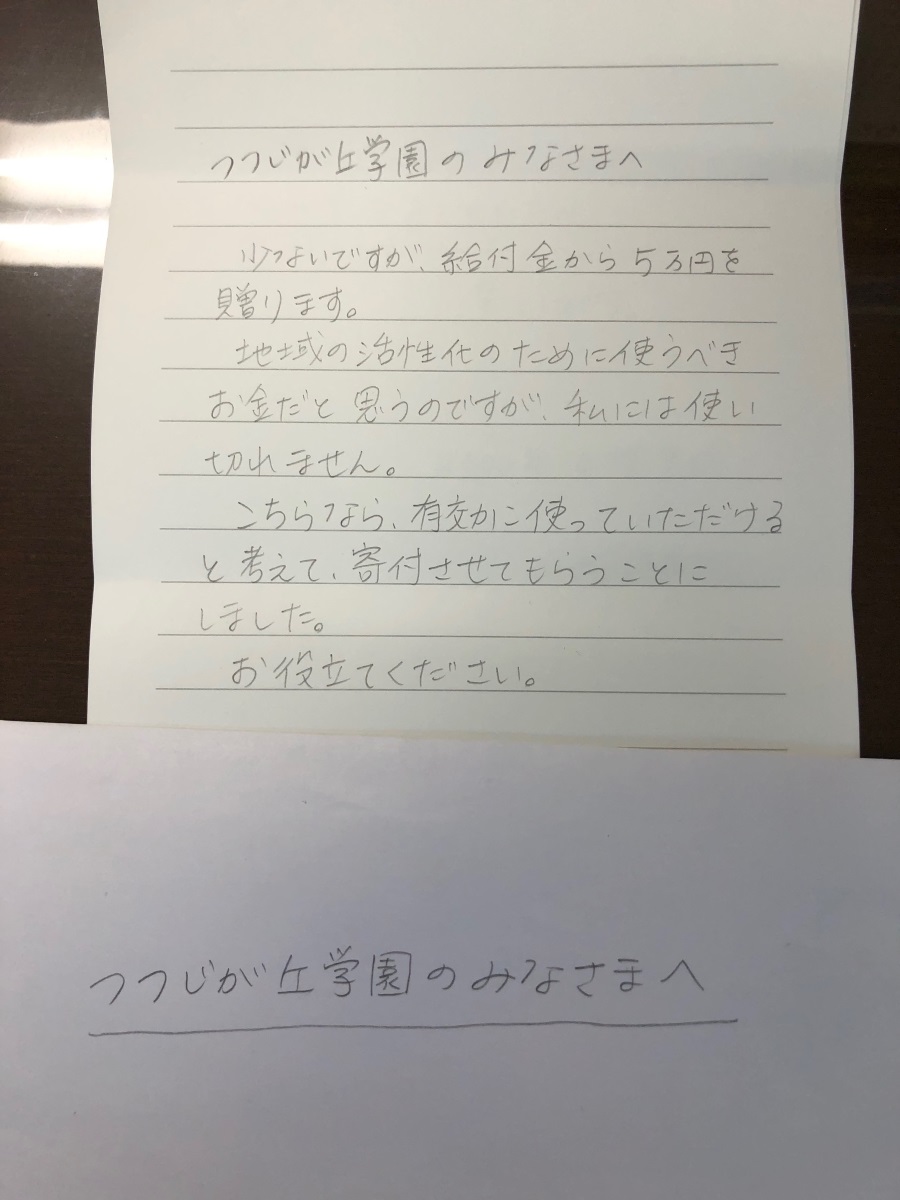 つつじが丘学園のみなさまへ
少ないですが、給付金から5万円を
贈ります。
地域の活性化のために使うべき
お金だと思うのですが、私には使い
切れません。
こちらなら、有効に使っていただける
と考えて、寄付させてもらうことに
しました。
お役立てください。
つつじが丘学園のみなさまへ